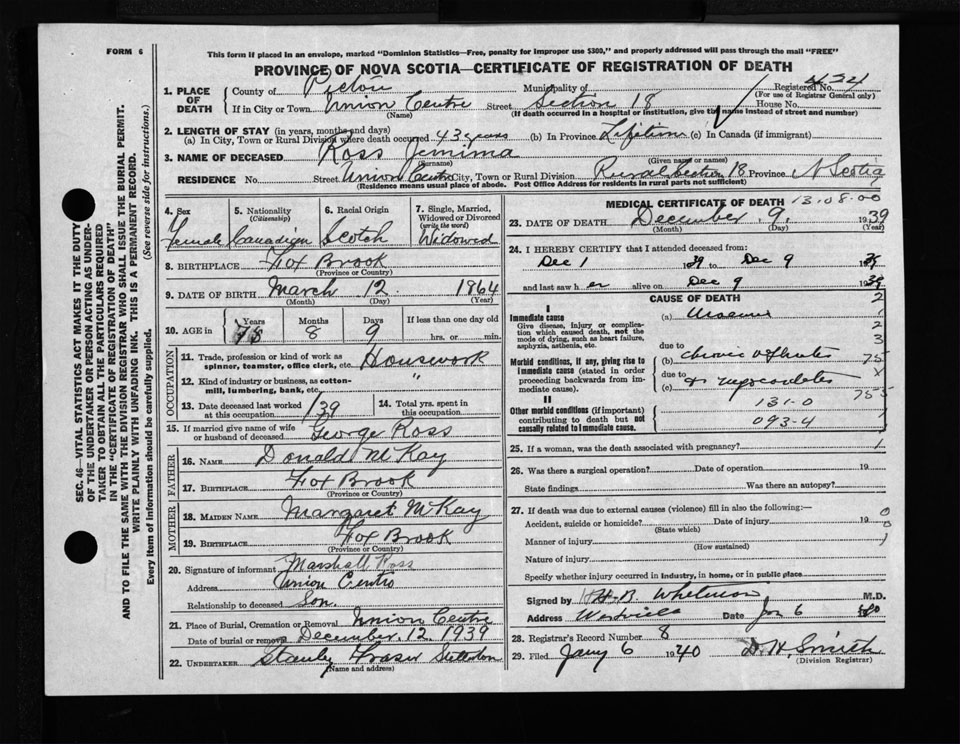 FORM 6
This form if placed in an envelope, marked "Dominion Statistics—Free, penalty for improper use $300," and properly addressed will pass through the mail "FREE"
PROVINCE OF NOVA SCOTIA—CERTIFICATE OF REGISTRATION OF DEATH
SEC. 46—VITAL STATISTICS ACT MAKES IT THE DUTY
OF THE UNDERTAKER OR PERSON ACTING AS UNDER-
TAKER TO OBTAIN ALL THE PARTICULARS REQUIRED
IN THE "CERTIFICATE OF REGISTRATION OF DEATH"
AND TO FILE THE SAME WITH THE DIVISION REGISTRAR WHO SHALL ISSUE THE BURIAL PERMIT.
WRITE PLAINLY WITH UNFADING INK. THIS IS A PERMANENT RECORD.
Every item of information should be carefully supplied. (See reverse side for instructions.)
1. PLACE OF DEATH County of Pictou Municipality of Registered No.
(For use of Registrar General only)
If in City or Town Union Centre Street Section 18 House No.
(Name) (If death occurred in a hospital or institution, give its name instead of street and number)
2. LENGTH OF STAY (in years, months and days)
(a) In City, Town or Rural Division where death occurred 43 years (b) In Province Lifetime (c) In Canada (if immigrant)
3. NAME OF DECEASED Ross Jemima
(Surname) (Given name or names)
RESIDENCE No. Street Union Centre City, Town or Rural Division Rural Section 18 Province N Scotia
(Residence means usual place of abode. Post Office Address for residents in rural parts not sufficient)
4. Sex Female
5. Nationality (Citizenship) Canadian
6. Racial Origin Scotch
7. Single, Married, Widowed or Divorced (write the word) Widowed
8. BIRTHPLACE Fox Brook
(Province or Country)
9. DATE OF BIRTH March 12 1864
(Month) (Day) (Year)
10. AGE in Years Months 8 Days 9 If less than one day old hrs. or min.
OCCUPATION
11. Trade, profession or kind of work as spinner, teamster, office clerk, etc. Housework
12. Kind of industry or business, as cotton-mill, lumbering, bank, etc. "
13. Date deceased last worked at this occupation 1939
14. Total yrs. spent in this occupation
15. If married give name of wife or husband of deceased George Ross
FATHER
16. NAME Donald McKay
17. BIRTHPLACE Fox Brook
(Province or Country)
MOTHER
18. MAIDEN NAME Margaret McKay
19. BIRTHPLACE Fox Brook
(Province or Country)
20. Signature of informant Marshall Ross
Address Union Centre
Relationship to deceased Son.
21. Place of Burial, Cremation or Removal Union Centre
Date of burial or removal December 12 1939
22. UNDERTAKER Stanley Fraser Stellarton
(Name and address)
MEDICAL CERTIFICATE OF DEATH 13.08.00
23. DATE OF DEATH December 9 1939
(Month) (Day)
24. I HEREBY CERTIFY that I attended deceased from:
Dec 1 1939 to Dec 9 1939
and last saw her alive on Dec 9 1939
CAUSE OF DEATH
I
Immediate cause
Give disease, injury or complication which caused death, not the mode of dying, such as heart failure, asphyxia, asthenia, etc.
(a) Uraemia
due to
Morbid conditions, if any, giving rise to immediate cause (stated in order proceeding backwards from immediate cause).
(b) Chronic Nephritis
due to
(c) & myocarditis
II
Other morbid conditions (if important) contributing to death but not causally related to immediate cause.
131-0
093-4
25. If a woman, was the death associated with pregnancy?
26. Was there a surgical operation? Date of operation 19
State findings Was there an autopsy?
27. If death was due to external causes (violence) fill in also the following:—
Accident, suicide or homicide? Date of injury 19
(State which)
Manner of injury
(How sustained)
Nature of injury
Specify whether injury occurred in industry, in home, or in public place
Signed by H. B. Whitman M.D.
Address Westville Date Jan 6
28. Registrar's Record Number 8
29. Filed Jany 6 1940 D. H. Smith
(Division Registrar)